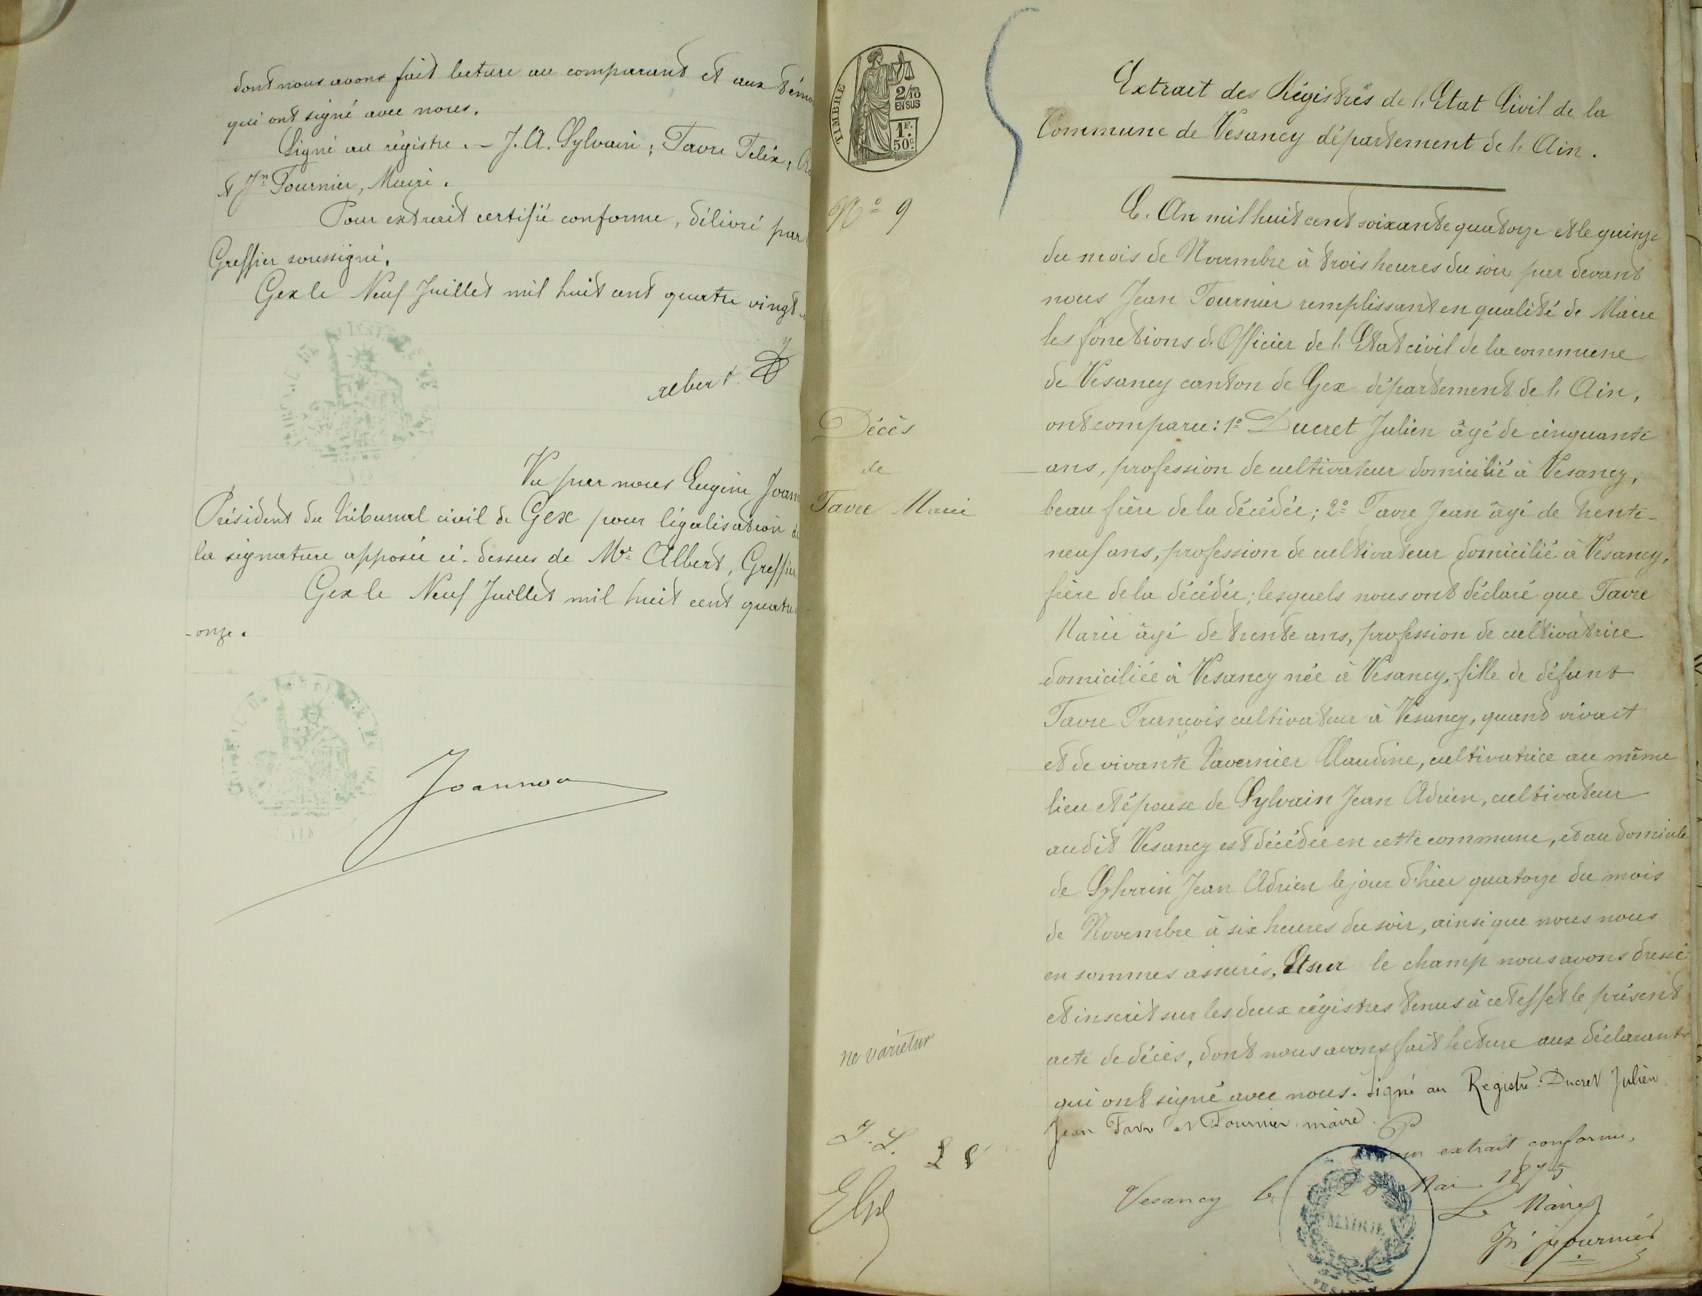 dont nous avons fait lecture au comparant et aux témo
qui ont signé avec nous.
Signé au régistre. – J. A. Sylvain ; Favre Félix ;
& Jn Fournier, Maire.
Pour extrait certifié conforme, délivré par
Greffier soussigné.
Gex le Neuf Juillet mil huit cent quatre vingt
Albert
Vu par nous Eugène Joann
Président du Tribunal civil de Gex pour légalisation d
la signature apposée ci-dessus de Mr Albert, Greffier
Gex le Neuf Juillet mil huit cent quatre
-onze.
Joannon
TIMBRE
2/10
EN SUS
1F.
50c
Nº 9
Décès
de
Favre Marie
ne varietur
Extrait des Régistres de l'Etat Civil de la
Commune de Vesancy département de l'Ain.
L'An mil huit cent soixante quatorze et le quinze
du mois de Novembre à trois heures du soir par devant
nous Jean Fournier remplissant en qualité de Maire
les fonctions d'Officier de l'Etat civil de la commune
de Vesancy canton de Gex département de l'Ain,
ont comparu : 1º Ducret Julien âgé de cinquante
ans, profession de cultivateur domicilié à Vesancy,
beau frère de la décédée ; 2º Favre Jean âgé de trente-
neuf ans, profession de cultivateur domicilié à Vesancy,
frère de la décédée ; lesquels nous ont déclaré que Favre
Marie âgé de trente ans, profession de cultivatrice
domiciliée à Vesancy née à Vesancy, fille de défunt
Favre François cultivateur à Vesancy, quand vivait
et de vivante Tavernier Claudine, cultivatrice au même
lieu et épouse de Sylvain Jean Adrien, cultivateur
audit Vesancy est décédée en cette commune, et au domicile
de Sylvain Jean Adrien le jour d'hier quatorze du mois
de Novembre à six heures du soir, ainsi que nous nous
en sommes assurés. Et sur le champ nous avons dressé
et inscrit sur les deux régistres tenus à cet effet le présent
acte de décès, dont nous avons fait lecture aux déclarants
qui ont signé avec nous. Signé au Registre. Ducret Julien
Jean Favre et Fournier maire.
Pour extrait conforme,
Vesancy le Mai 1875
Le Maire
Jn Fournier
MAIRIE